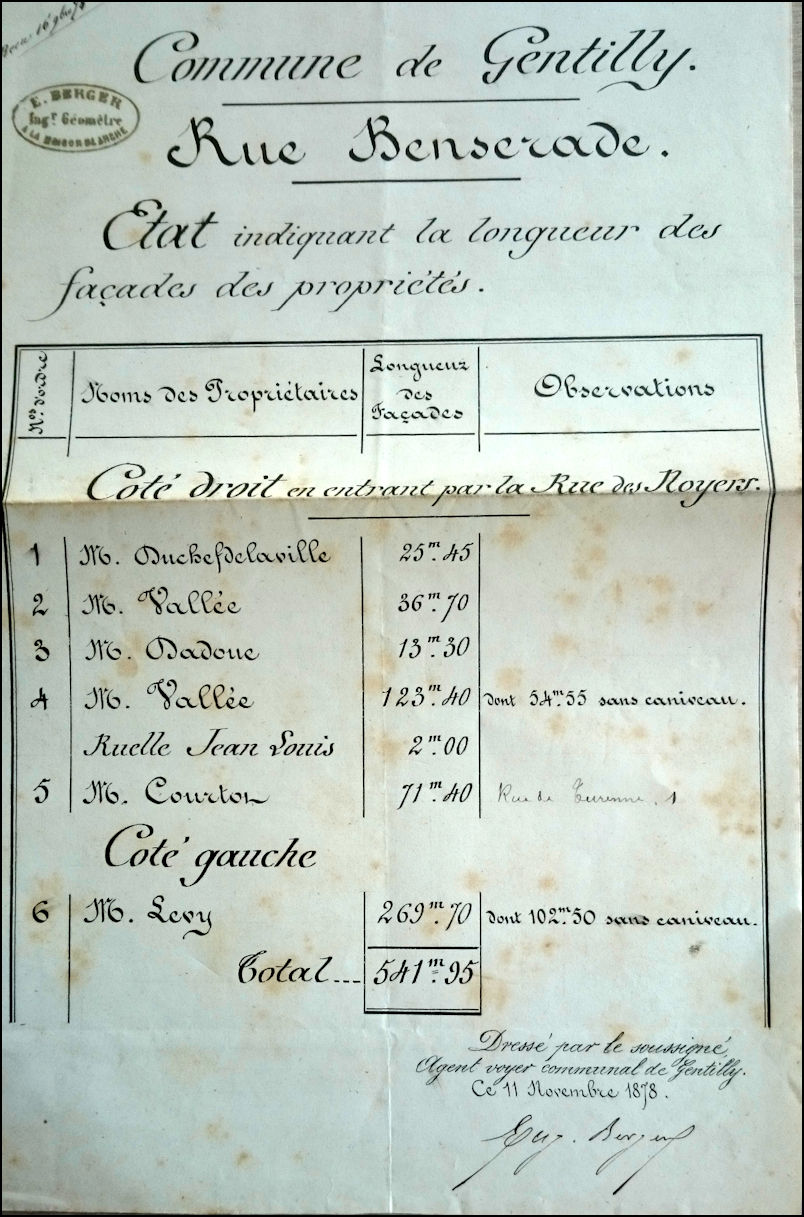 16 9bre 78
Commune de Gentilly.
E. BERGER
Ingr. Géomètre
A LA MAISON BLANCHE
Rue Benserade.
Etat indiquant la longueur des
façades des propriétés.
Nos d'ordre | Noms des Propriétaires | Longueur des Façades | Observations
Coté droit en entrant par la Rue des Noyers.
1 M. Duchefdelaville 25m.45
2 M. Vallée 36m.70
3 M. Dadoue 13m.30
4 M. Vallée 123m.40 dont 54m.55 sans caniveau.
Ruelle Jean Louis 2m.00
5 M. Courton 71m.40 Rue de Turenne, 1
Coté gauche
6 M. Levy 269m.70 dont 102m.50 sans caniveau.
Total.... 541m.95
Dressé par le soussigné,
Agent voyer communal de Gentilly.
Ce 11 Novembre 1878.
Eug. Berger